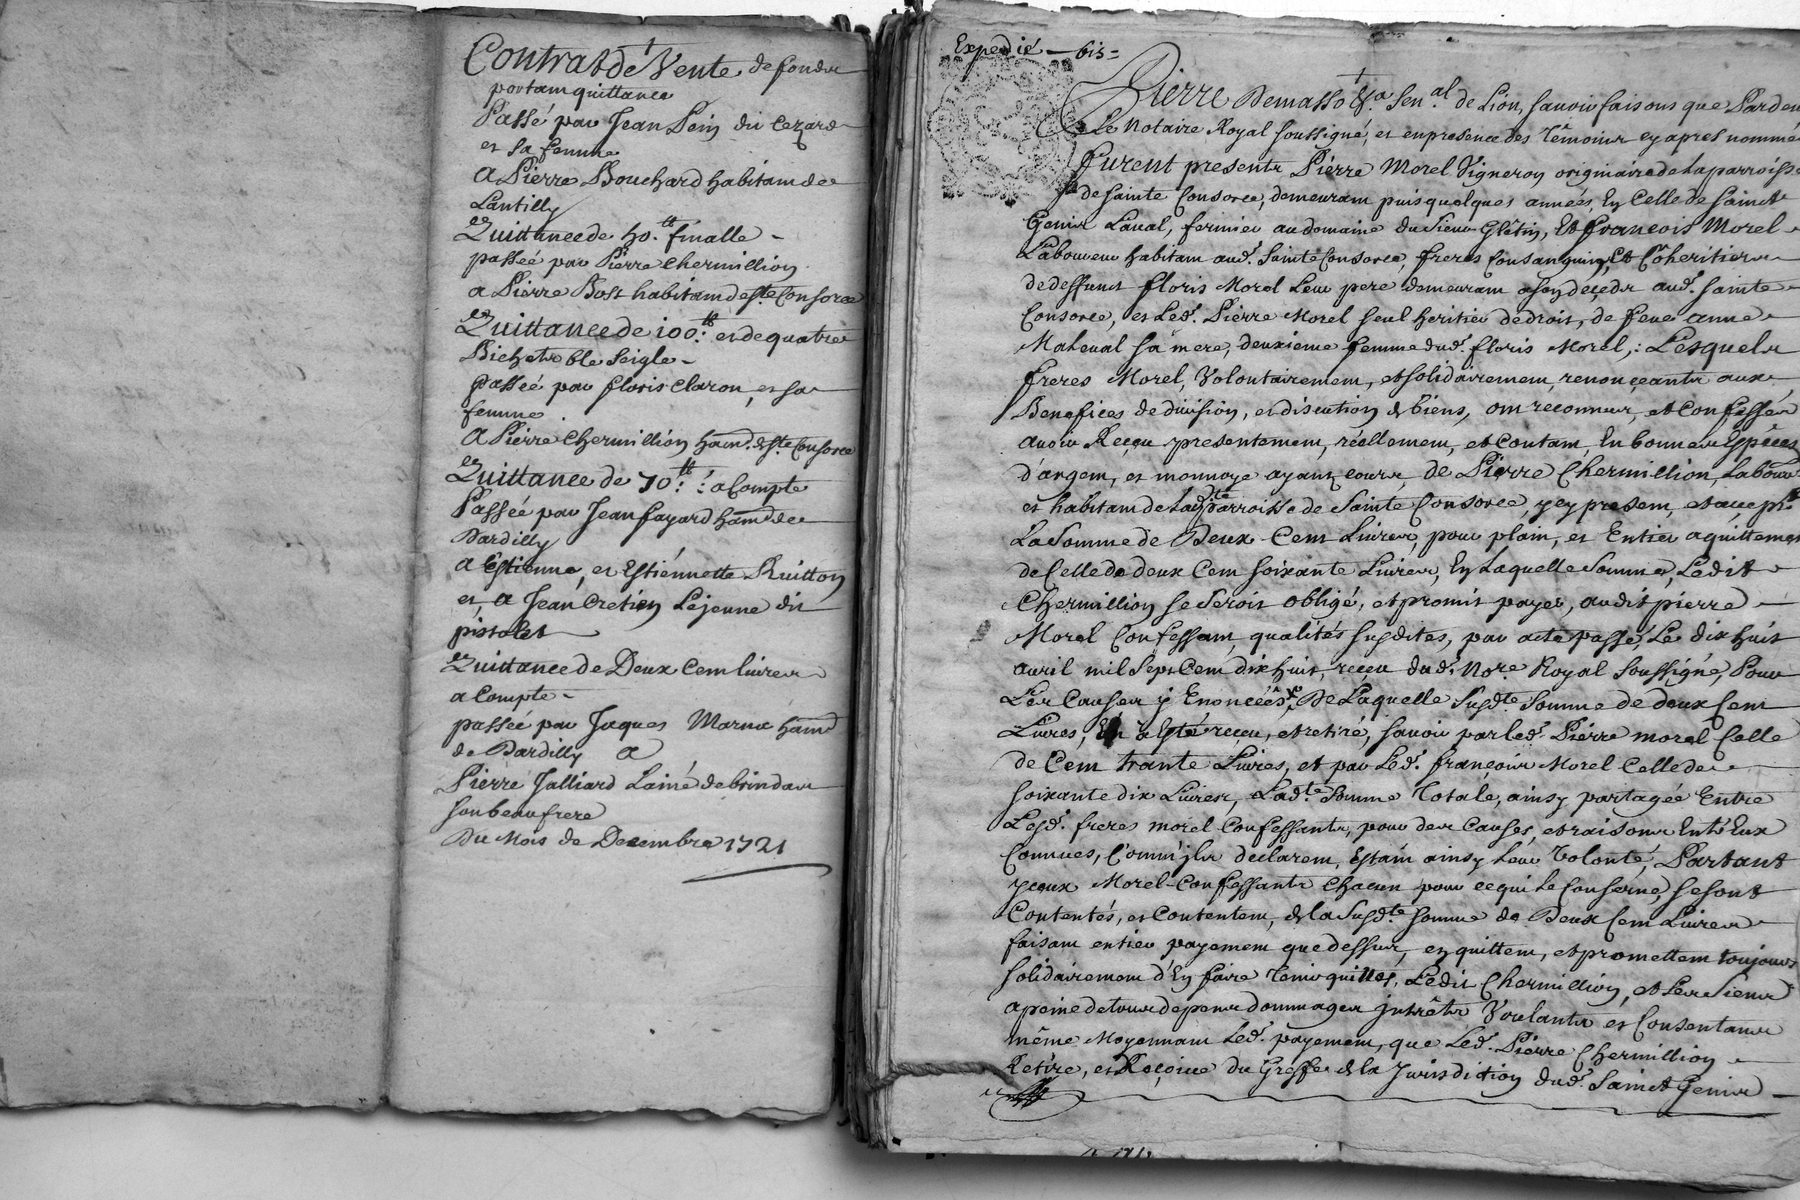 Contrat de Vente de fonds
portant quittance
Passé par Jean Pein dit Cezard
et sa femme
A Pierre Bouchard habitant de
Lantilly
Quittance de 40.tt finalle
passée par Pierre Chermillion
a Pierre Bost habitant de Ste Consorce
Quittance de 100.tt et de quatre
Bichets blé seigle
passée par floris Claron, et sa
femme
A Pierre Chermillion hant. de Ste Consorce
Quittance de 70.tt a Compte
Passée par Jean fayard hant de
Dardilly
a Estienne, et Estiennette Ruitton
et, a Jean Cretien Lejeune dit
pistolet
Quittance de Deux Cent livres
a Compte
passée par Jaques Marnx hant
de Dardilly A
Pierre Jalliard L'ainé de brindas
son beaufrere
Du Mois de Decembre 1721
Expedié bis
Pierre Demasso sen.al de Lion, savoir faisons que Pardevant
Le Notaire Royal soussigné, et en presence des Témoins cy apres nommés
furent presents Pierre Morel Vigneron originaire de la parroisse
de sainte Consorce, demeurant puis quelques années, En Celle de Sainct
Genis Laval, fermier au domaine du Sieur Gletin, Et francois Morel
Laboureur habitant aud. Sainte Consorce, freres Consanguins, Et Coheritiers
de deffunct floris Morel Leur pere demeurant a son decedz aud. sainte
Consorce, et Led. Pierre Morel seul heritier de droit, de feue anne
Mateval sa mere, deuxieme femme dud. floris Morel,: Lesquels
freres Morel, Volontairement, et solidairement, renonçeants aux
Benefices de division, et discution de biens, ont reconnu, et Confessé
avoir Reçeu presentement, réellement, et Contant, En bonnes Espèces
d'argent, et monnoye ayant cours de Pierre Chermillion, Labour
et habitant de Ladte parroisse de Sainte Consorce, y cy present, et accept
La Somme de Deux Cent Livres, pour plain, et Entier aquittement
de Celle de deux Cent soixante Livres, En Laquelle Somme, Ledit
Chermillion se seroit obligé, et promit payer, audit pierre
Morel Confessant, qualités susdites, par acte passé, Le dix huit
avril mil Sept Cent dix huit, reçeu dud. Nore Royal soussigné, Pour
Les Causes y Enoncéés, De Laquelle Susdte Somme de deux Cent
Livres, En a Esté receu, et retiré, savoir par Led. Pierre morel Celle
de Cent trante Livres, et par Led. françois Morel Celle de
soixante dix Livres, Ladte Somme Totale, ainsy partagée Entre
Lesd. freres morel Confessants, pour des Causes, et raisons Entr'Eux
Connues, Comm'jls declarent, Estant ainsy Leur Volonté, Partant
yceux Morel Confessants Chacun pour ce qui Le Conserne, se sont
Contentés, et Contentent, de la Susdte somme de Deux Cent Livres
faisant entier payement que dessus, en quittent, et promettent toujours
solidairement d'En faire tenir quittes, Ledit Chermillion, et Les Siens
a peine de tous depens dommages jntrêts Voulants et Consentants
même Moyennant Led. payement, que Led. Pierre Chermillion
Retire, et Reçoive du Greffe de la Jurisdiction dud. Sainct Genis